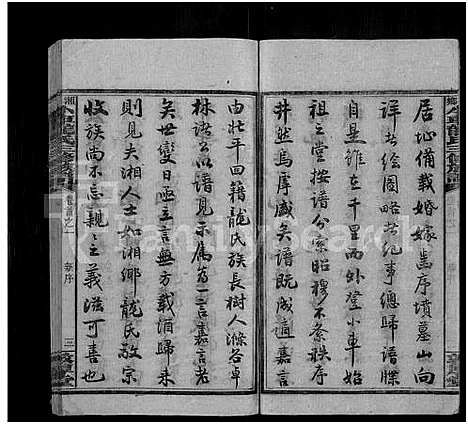 居址備載婚嫁生序墳墓山向
詳於繪圖略於紀事總歸譜牒
自是雖在千里而外登小車始
祖之堂按譜分宗昭穆不紊秩序
井然焉厚盛矣譜既成適嘉言
由北平回籍龍氏族長樹人滌各卓
林諸公以譜見示屬為一言嘉言老
矣世變日亟立言無方載酒歸來
則見夫湘人士如湘鄉龍氏敬宗
收族尚不忘親親之義滋可喜也
湘鄉
龍氏三修族譜
卷首之一
新序
三
FamilySearch